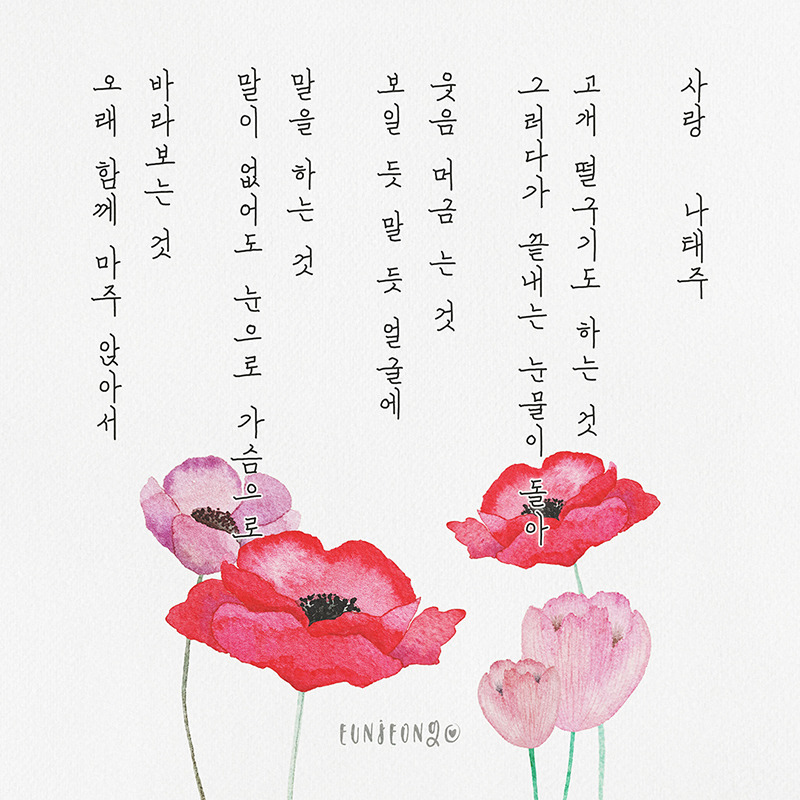 오래 함께 마주 앉아서
바라보는 것
말이 없어도 눈으로 가슴으로
말을 하는 것
보일 듯 말 듯 얼굴에
웃음 머금 는 것
그러다가 끝내는 눈물이 돌아
고개 떨구기도 하는 것
사랑 나태주
EUNJEONG